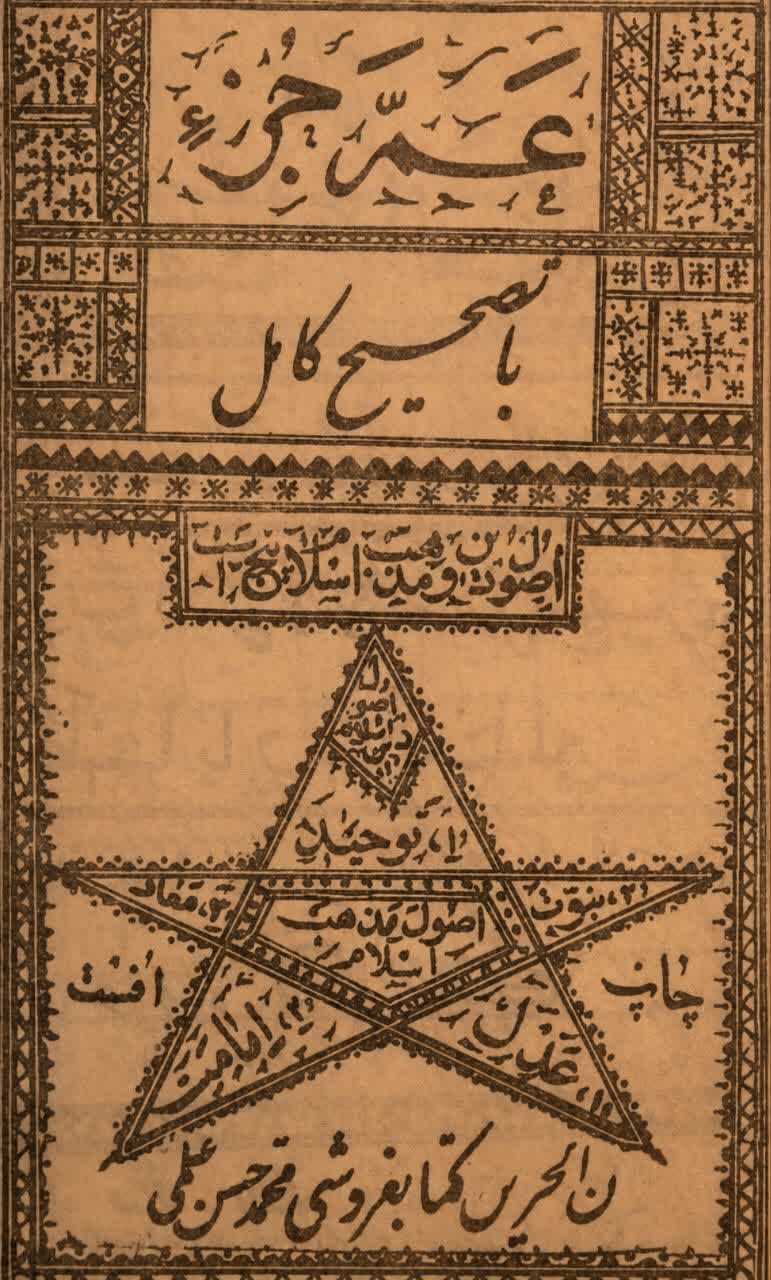 عَمَّ جُزْءِ
با تصحیح کامل
اصول دین و مذهب اسلام پنج است
اصول
اسلام
دین
۱، توحید
۲، نبوت
۳، معاد
اصول مذهب
اسلام
۱، عدل
۲، امامت
چاپ
افست
الحرمین کتابفروشی محمد حسن علمی